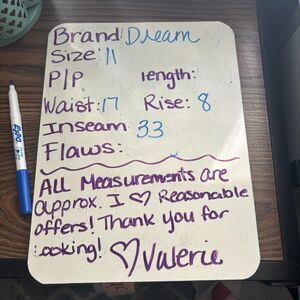 Brand: Dream
Size: 11
P/P length:
Waist: 17 Rise: 8
Inseam 33
Flaws:
ALL Measurements are
approx. I ♡ Reasonable
offers! Thank you for
Looking! ♡ Valerie
EXPO